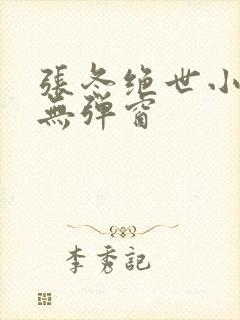 張冬绝世小
無弹窗
李秀記